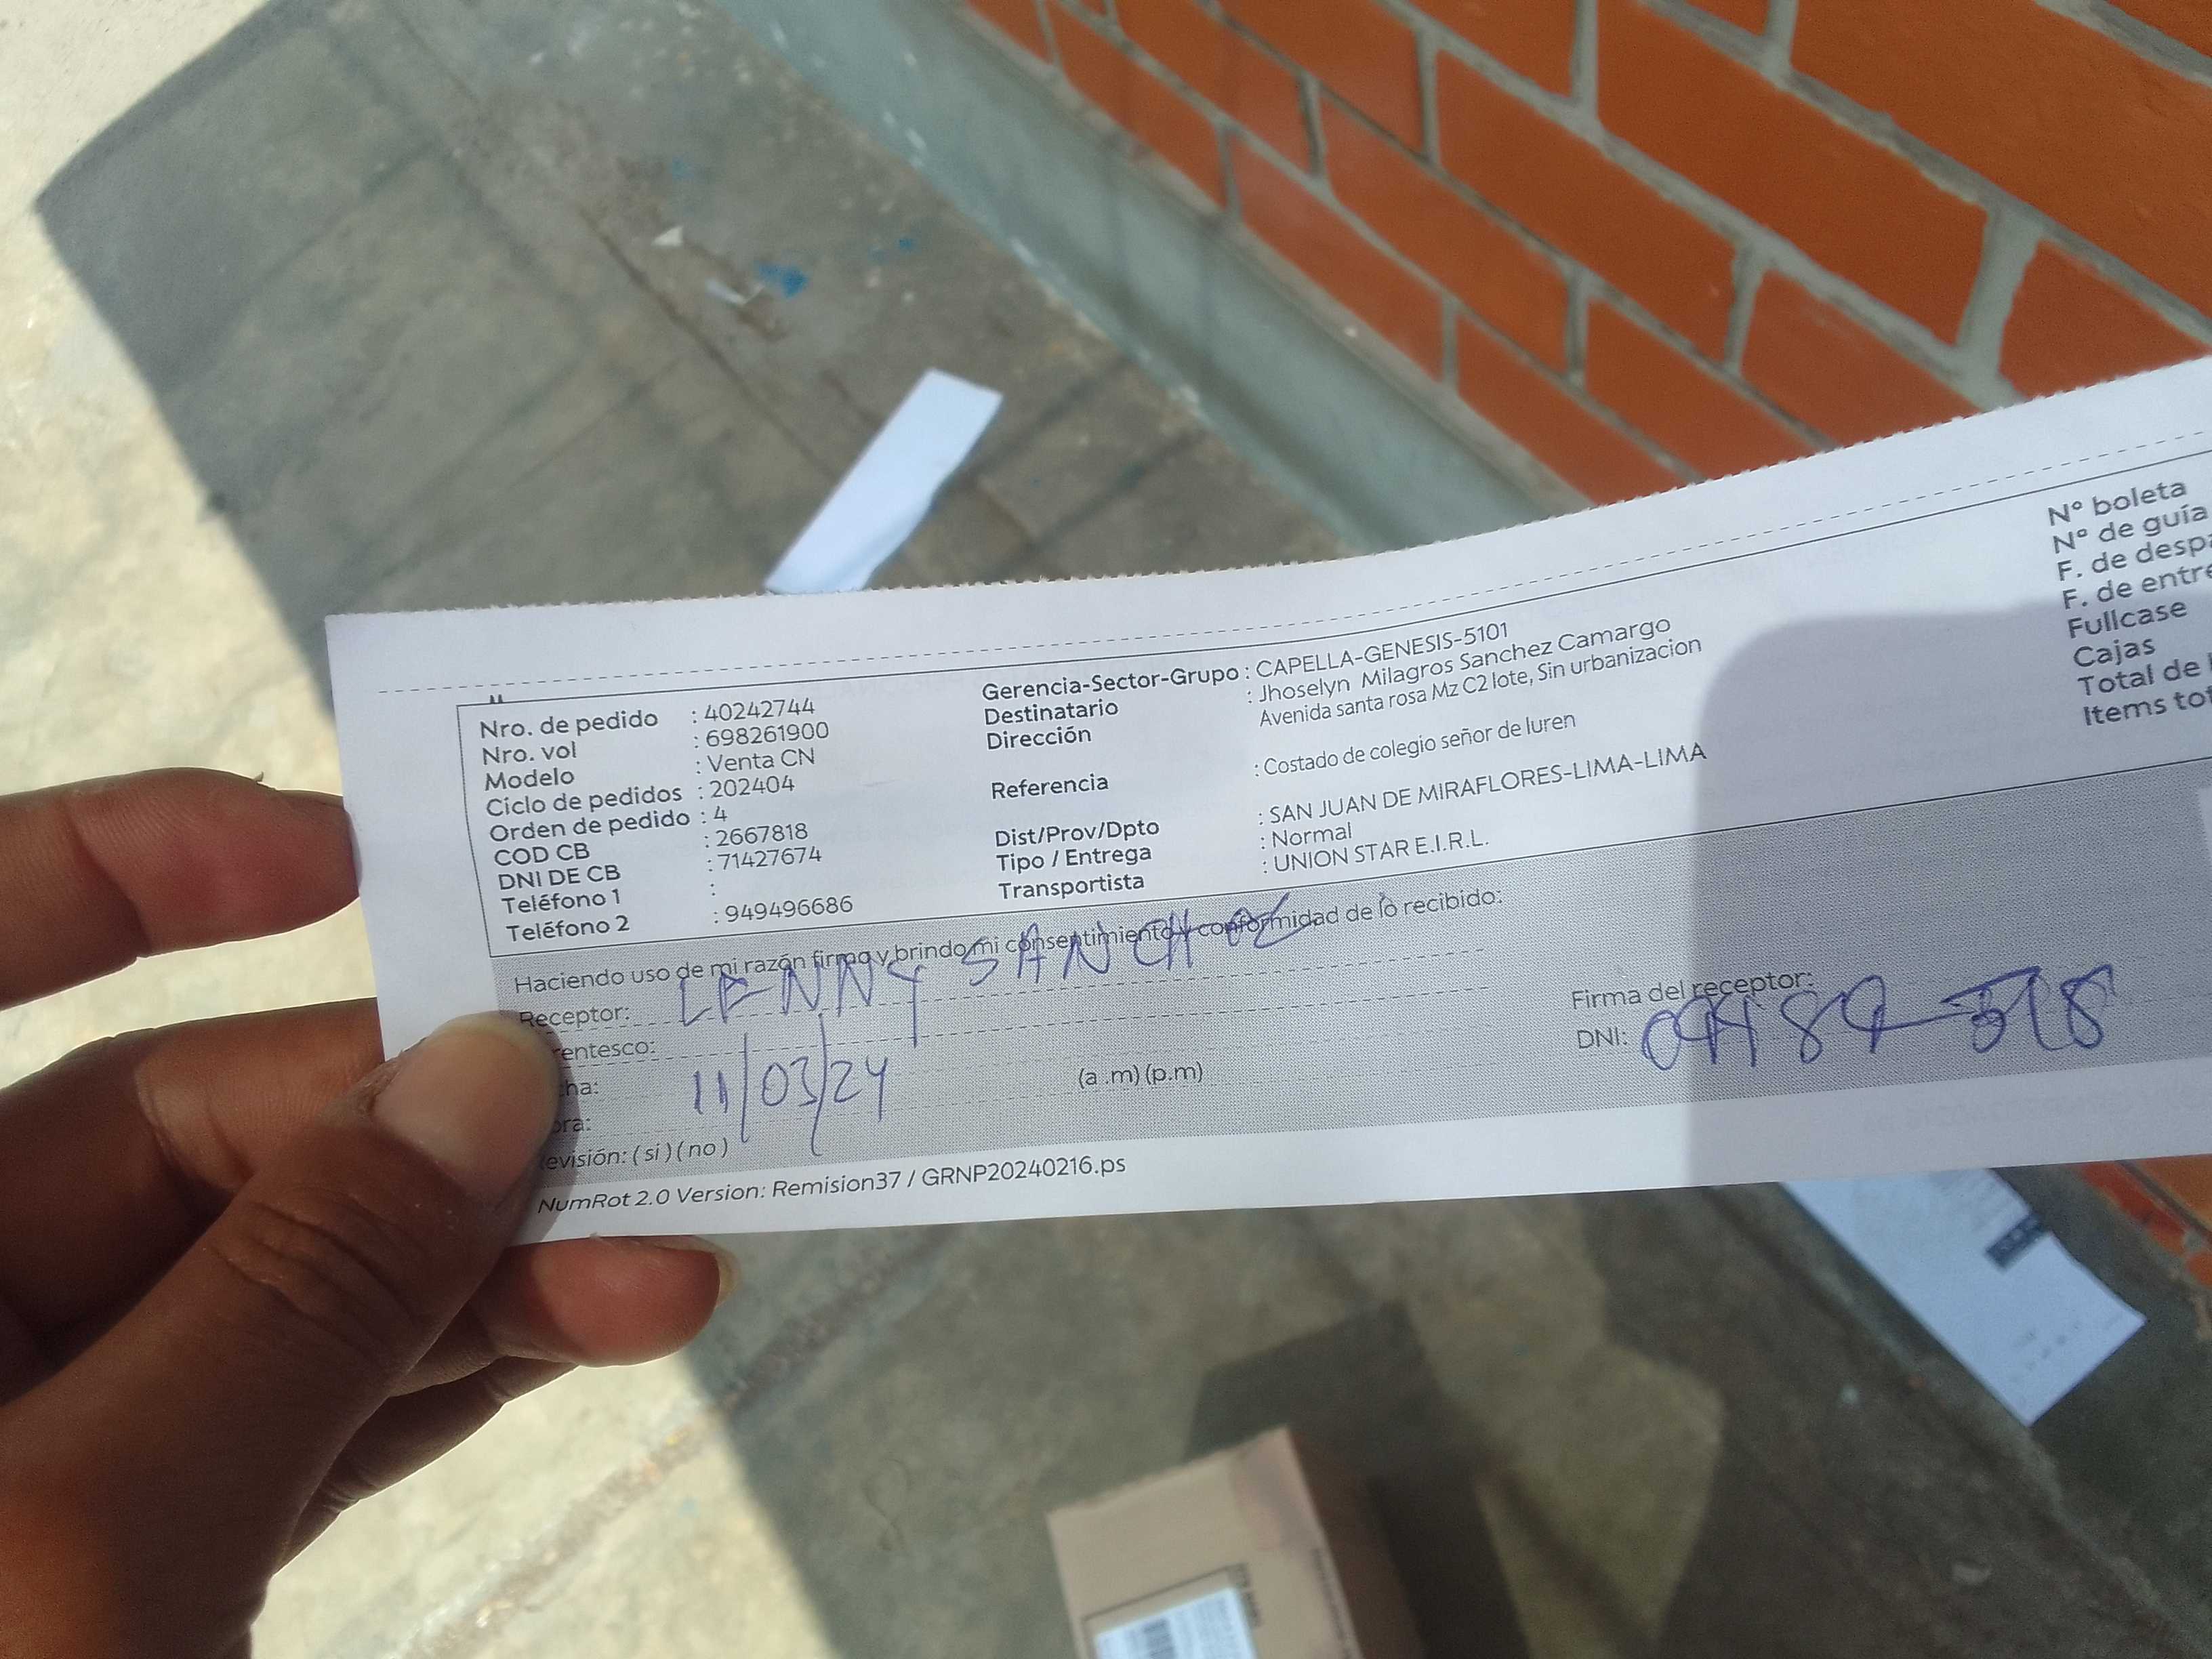 Nro. de pedido : 40242744
Nro. vol : 698261900
Modelo : Venta CN
Ciclo de pedidos : 202404
Orden de pedido : 4
COD CB : 2667818
DNI DE CB : 71427674
Teléfono 1 :
Teléfono 2 : 949496686
Gerencia-Sector-Grupo : CAPELLA-GENESIS-5101
Destinatario : Jhoselyn Milagros Sanchez Camargo
Dirección Avenida santa rosa Mz C2 lote, Sin urbanizacion
Referencia : Costado de colegio señor de luren
Dist/Prov/Dpto : SAN JUAN DE MIRAFLORES-LIMA-LIMA
Tipo / Entrega : Normal
Transportista : UNION STAR E.I.R.L.
Nº boleta
Nº de guía
F. de despa
F. de entre
Fullcase
Cajas
Total de
Items tot
Haciendo uso de mi razón firma y brindo mi consentimiento y conformidad de lo recibido:
Receptor: LENNY SANCHEZ
rentesco:
ha: 11/03/24
ora: (a .m) (p.m)
evisión: ( si ) ( no )
Firma del receptor:
DNI:
NumRot 2.0 Version: Remision37 / GRNP20240216.ps